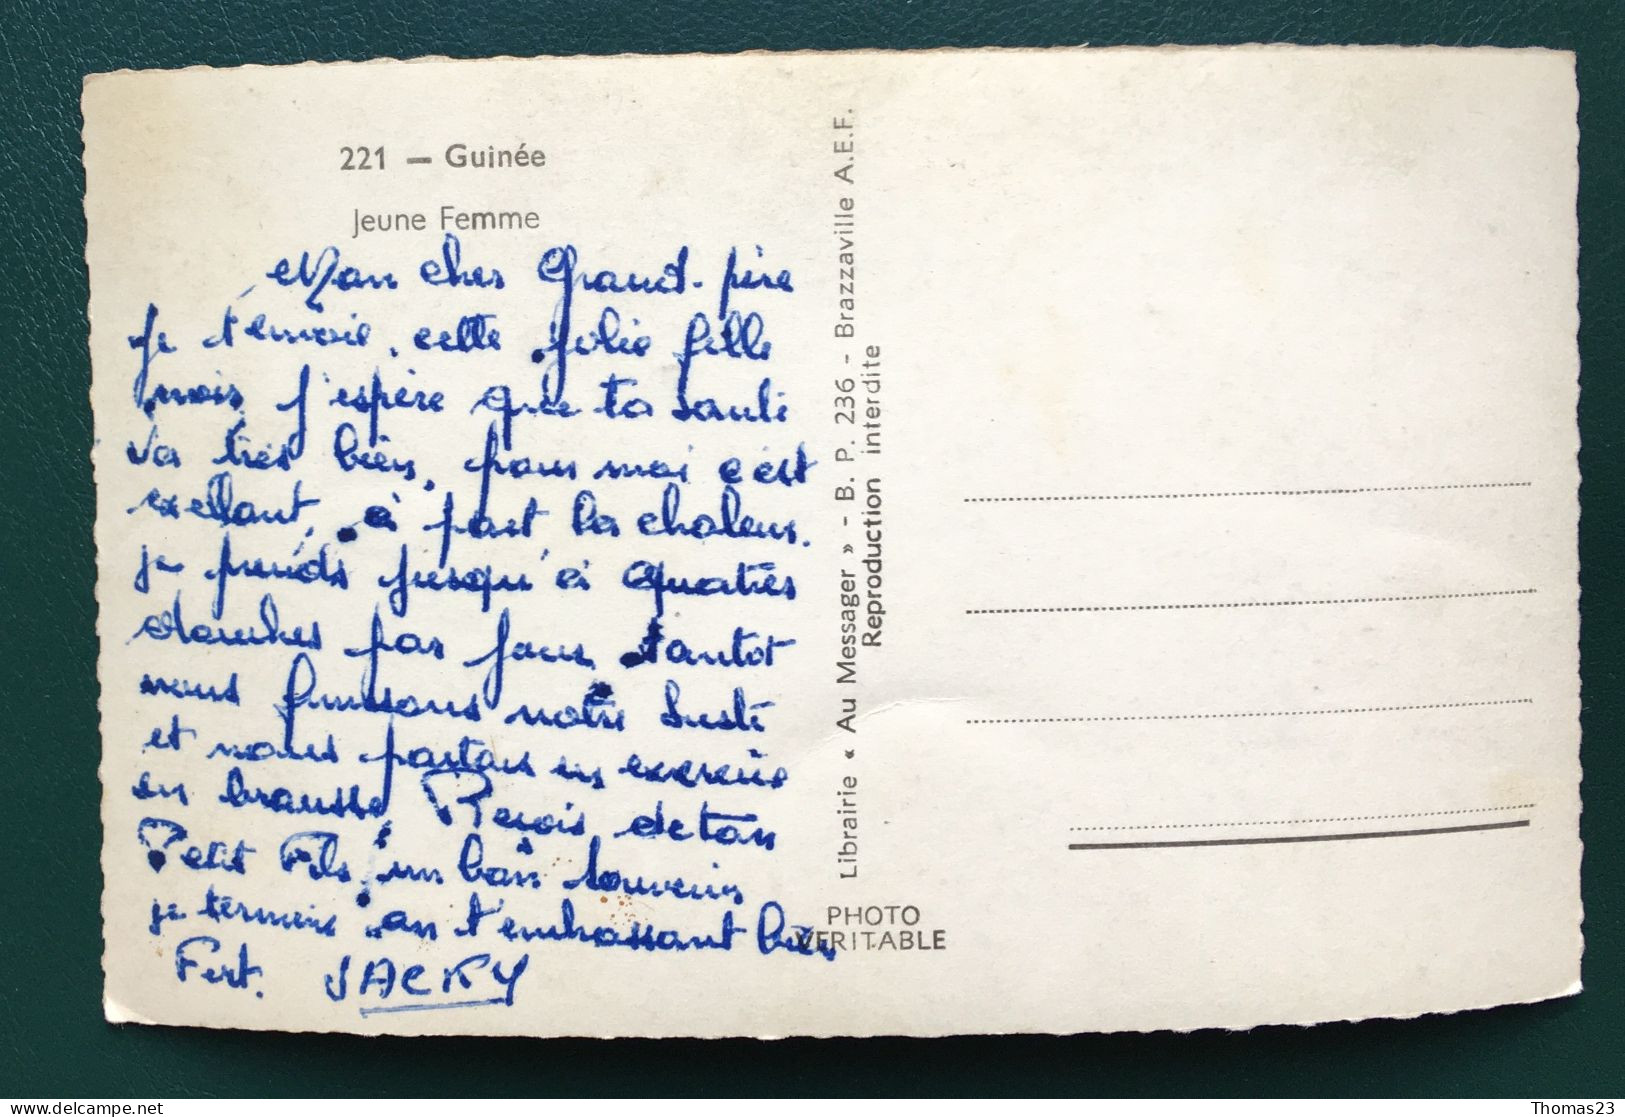 221 — Guinée
Jeune Femme
Mon cher Grand-père
je t'envoie, cette jolie fille
mois, j'espère que ta santé
va très bien, pour moi c'est
exellant, à part la chaleur.
je prends jusqu'à quatres
douches par jour. tantot
nous finissons notre
et nous partons en exercice
en brousse. Reçois de ton
Petit Fils, un bon souvenir
je termine en t'embrassant bien
Fort. JACKY
Librairie « Au Messager » - B. P. 236 - Brazzaville A.E.F.
Reproduction interdite
PHOTO
VERITABLE
Thomas23